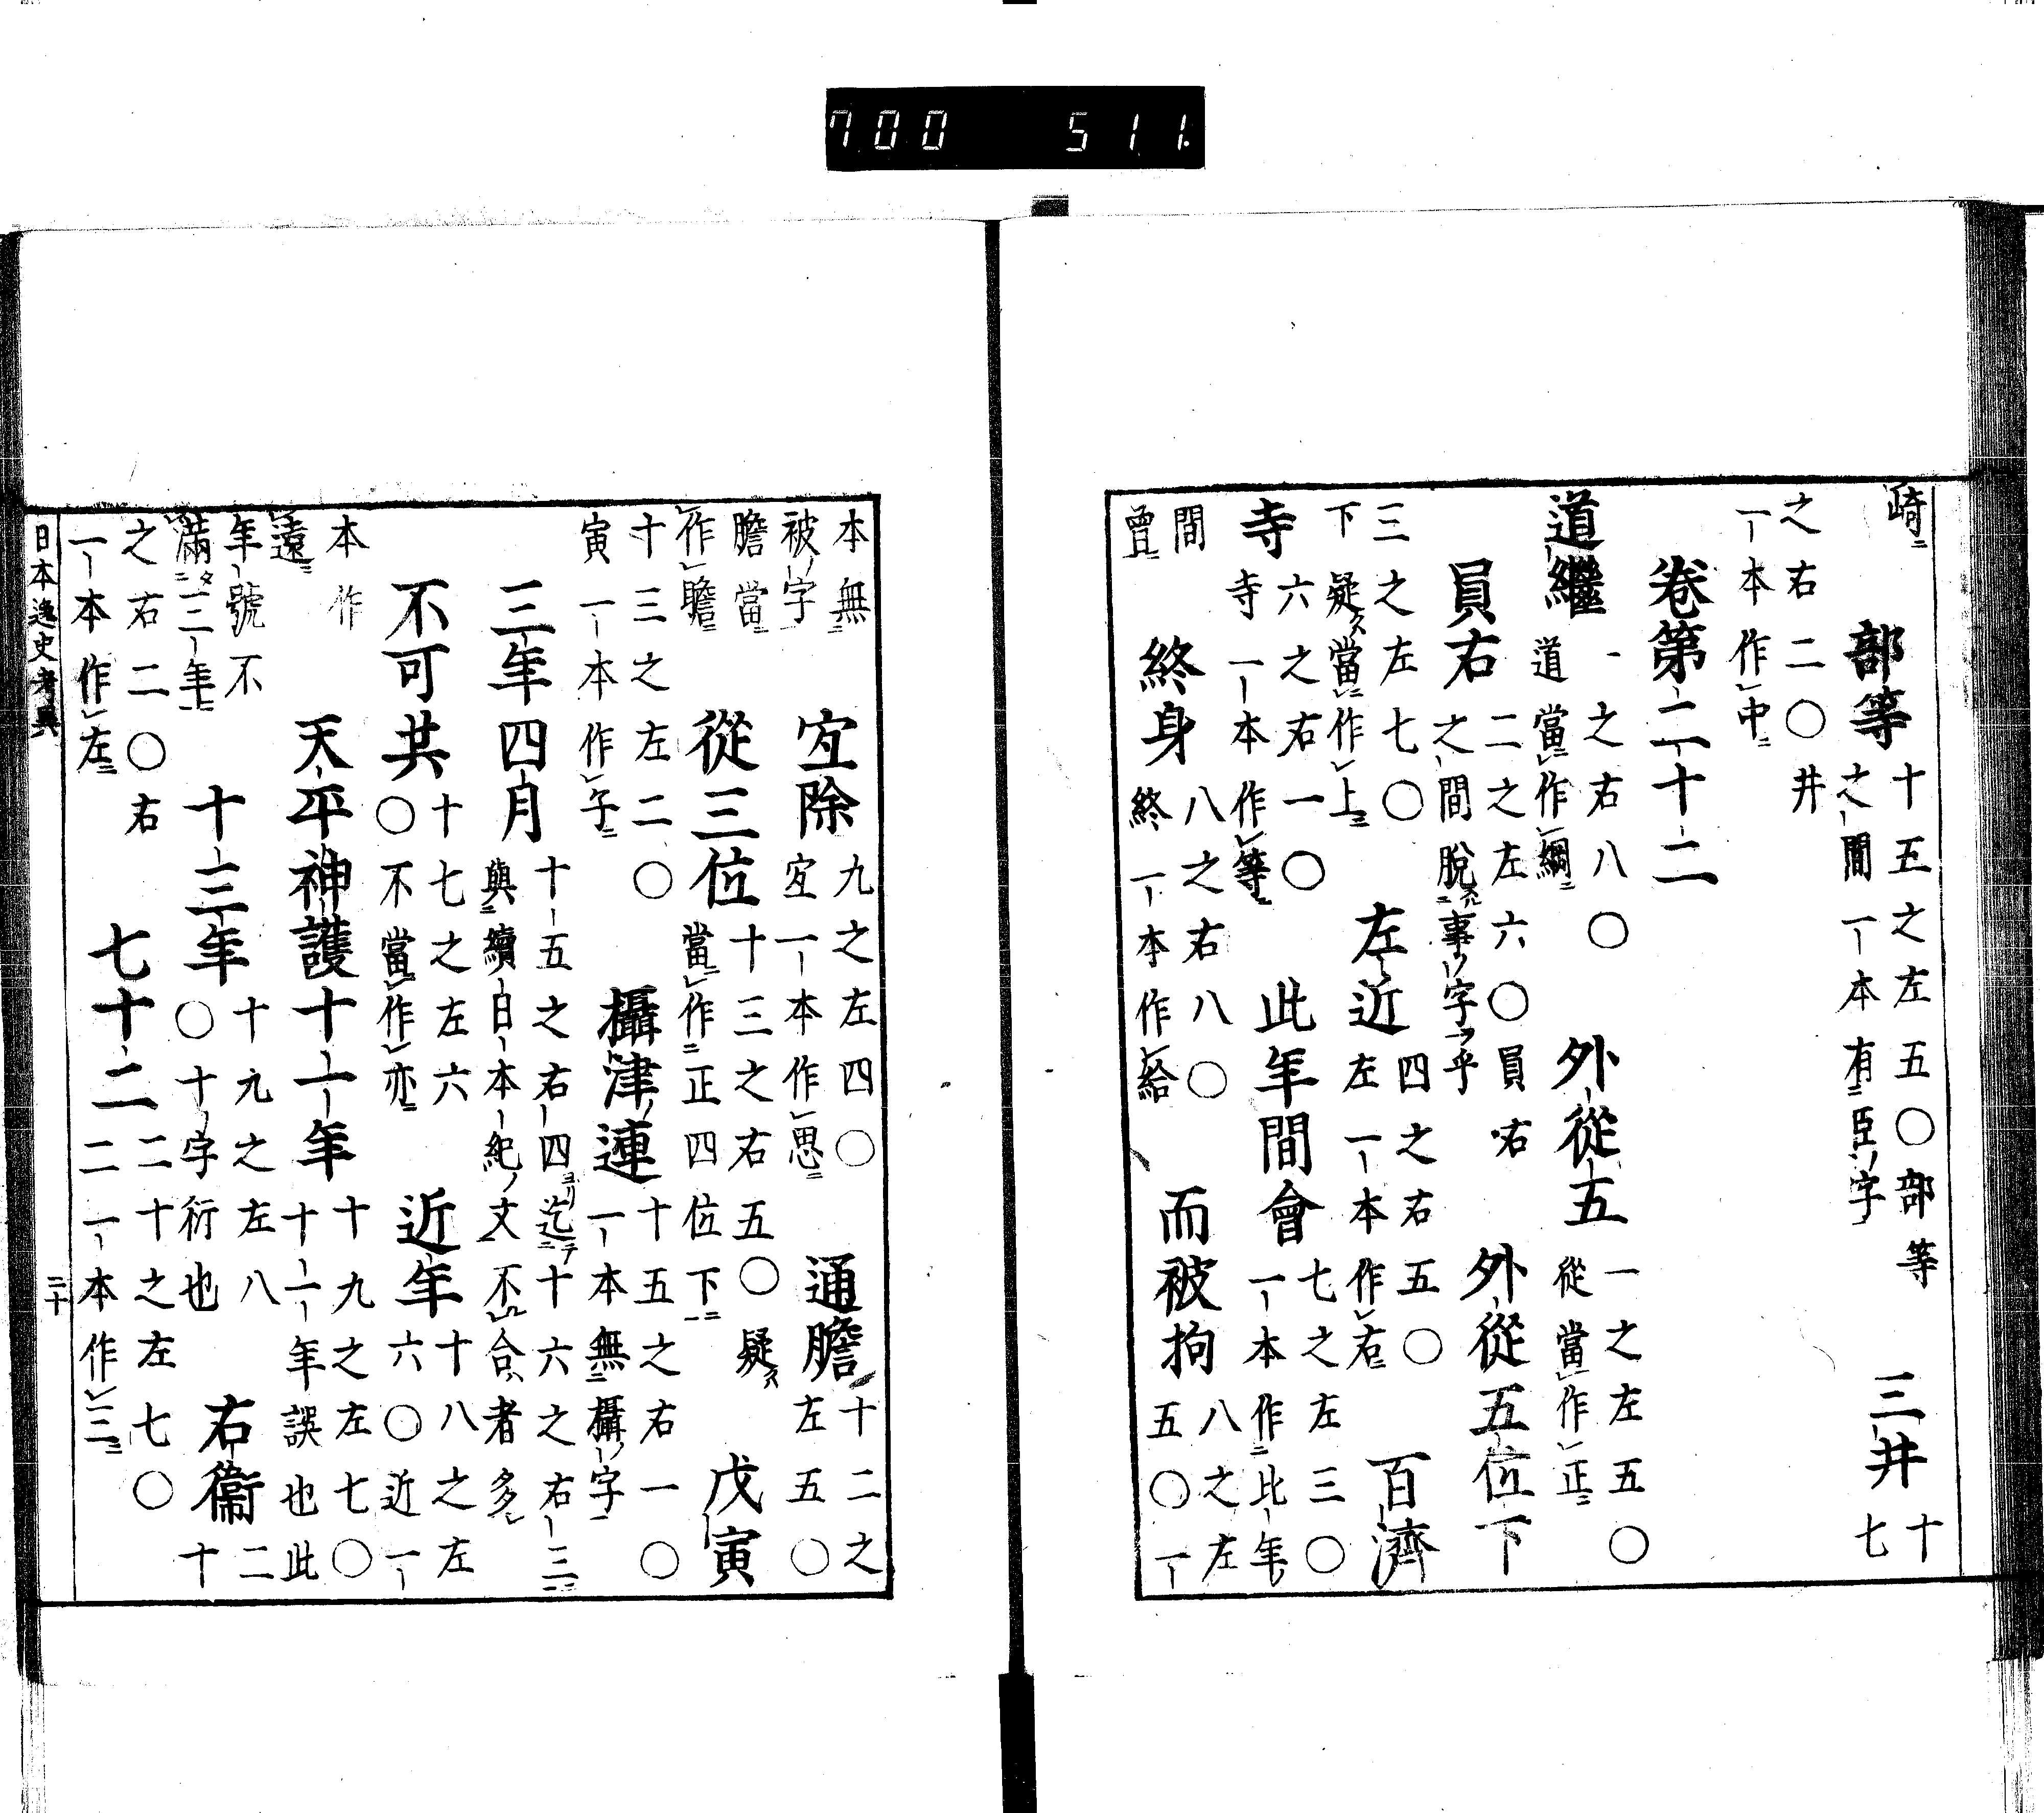 700 511.
崎ニ 部等 十五之左五〇部等之間一本有臣ノ字 三井 十七
之右二〇井一本作中ニ
卷第二十二
道繼 一之右八〇道當作綱ニ 外從五 一之左五〇從當作正ニ
員右 二之左六〇員右之間脫事ノ字ヲ乎 外從五位下
三之左七〇下疑クハ當作上ニ 左近 四之右五〇左一本作右ニ 百濟
寺 六之右一〇寺一本作等ニ 此年間會 七之左三〇一本作ニ比年
間曾ニ 終身 八之右八〇終一本作給 而被拘 八之左五〇一
本無被ノ字 宐除 九之左四〇宐一本作思ニ 通膽 十二之左五〇
膽當作瞻ニ 從三位 十三之右五〇疑クハ當作ニ正四位下 戊寅
十三之左二〇寅一本作午ニ 攝津連 十五之右一〇一本無攝ノ字
三年四月 十五之右四ヨリ迄テ十六之右三ニ與續日本紀ノ文不合者多シ
不可共 十七之左六〇不當作亦ニ 近年 十八之左六〇近一
本作遠ニ 天平神護十一年 十九之左七〇十一年誤也此
年號不滿タ三年ニ 十三年 十九之左八〇十字衍也 右衞 二十
之右二〇右一本作左ニ 七十二 二十之左七〇二一本作三ニ
日本逸史考異 二十